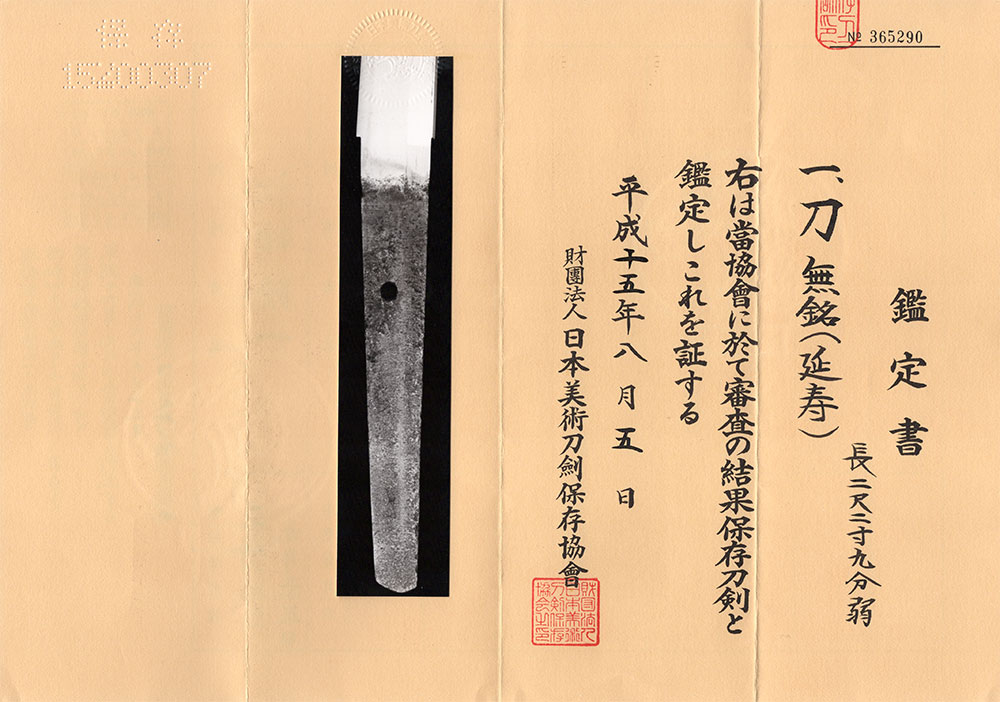 № 365290
鑑定書
一、刀 無銘(延寿)
長二尺二寸九分弱
右は當協會に於て審査の結果保存刀剣と
鑑定しこれを証する
平成十五年八月五日
財團法人日本美術刀劍保存協會
財団法人
日本美術
刀剣保存
協会之印
保存
15200307